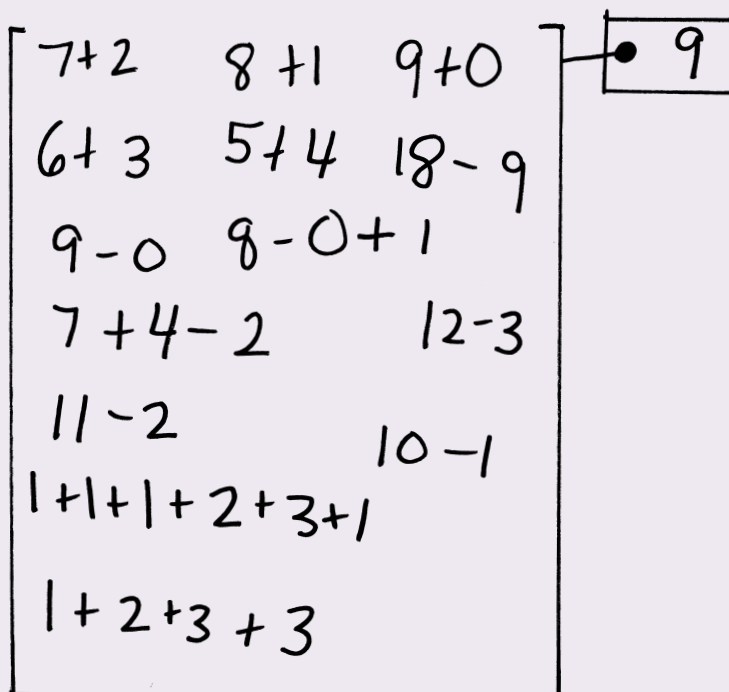 7+2 8+1 9+0 9
6+3 5+4 18-9
9-0 8-0+1
7+4-2 12-3
11-2 10-1
1+1+1+2+3+1
1+2+3+3